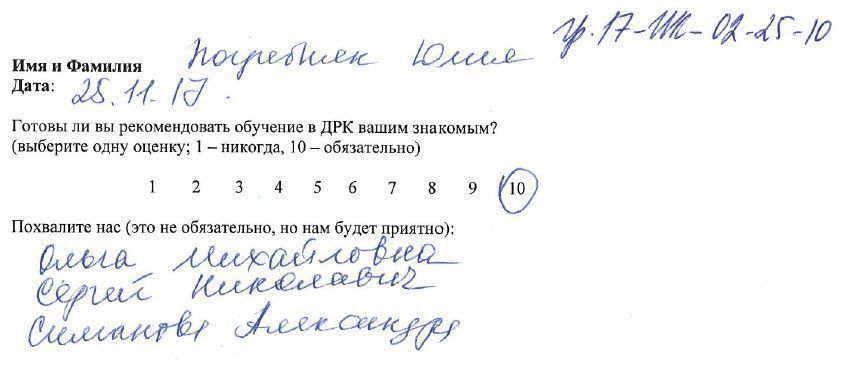 гр. 17-ШК-02-25-10
Имя и Фамилия Погребняк Юлия
Дата: 25.11.17.
Готовы ли вы рекомендовать обучение в ДРК вашим знакомым?
(выберите одну оценку; 1 – никогда, 10 – обязательно)
1 2 3 4 5 6 7 8 9 10
Похвалите нас (это не обязательно, но нам будет приятно):
Ольга Михайловна
Сергей Николавич
Симанова Александра